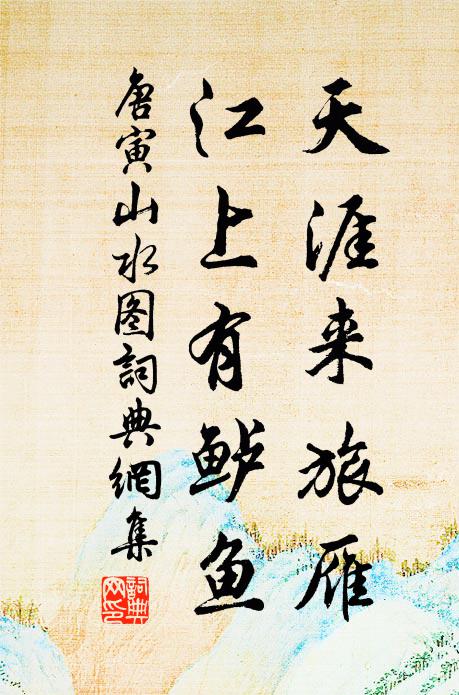 天涯来旅雁
江上有鲈鱼
唐寅山水图詞典網集
詞典